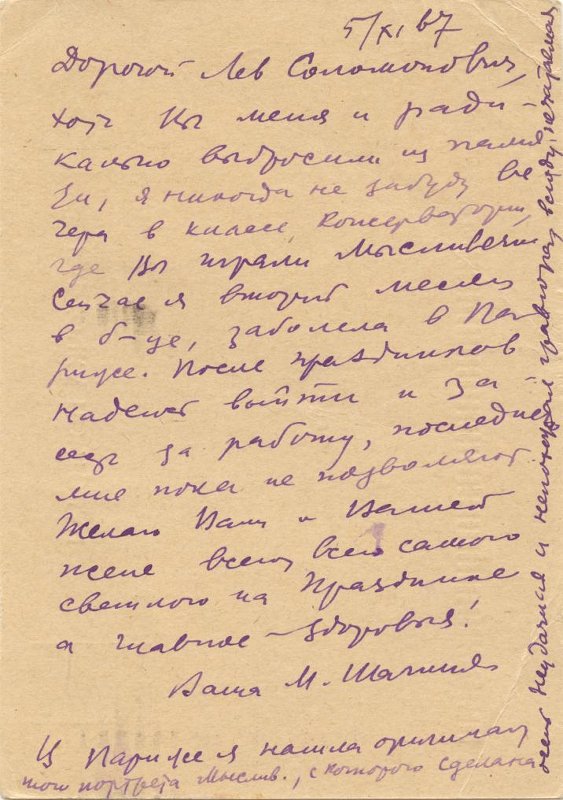 5/XI 67
Дорогой Лев Соломонович,
хоть Вы меня и ради-
кально выбросили из памя-
ти, я никогда не забуду ве
чера в классе Консерватории,
где Вы играли Мысливечка
Сейчас я второй месяц
в б-це, заболела в Па
риже. После праздников
надеюсь выйти и за-
сесть за работу, последнее
мне пока не позволяют.
Желаю Вам и Вашей
жене всего всего самого
светлого на Празднике
а главное – здоровья!
Ваша М.
В Париже я нашла оригинал
того портрета Мыслив., с которого сделана
очень неудачная и непохожая гравюра, всюду печатаемая